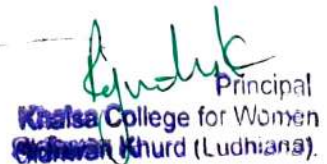 Principal
Khalsa College for Women
Sidhwan Khurd (Ludhiana).